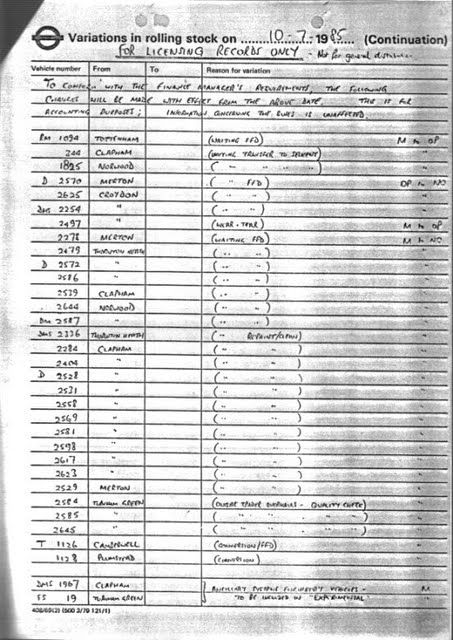 Variations in rolling stock on 10-7-1985 (Continuation)
FOR LICENSING RECORDS ONLY - Not for general distribution
Vehicle number From To Reason for variation
TO COMFORM WITH THE FINANCE MANAGER'S REQUIREMENTS, THE FOLLOWING
CHANGES WILL BE MADE WITH EFFECT FROM THE ABOVE DATE. THIS IS FOR
ACCOUNTING PURPOSES; INFORMATION CONCERNING THE BUSES IS UNAFFECTED.
RM 1094 TOTTENHAM (WAITING FFD) M to OP
244 CLAPHAM (WAITING TRANSFER TO " "
1825 NORWOOD ( " " " ) "
D 2570 MERTON ( " FFD) OP to NO
2625 CROYDON ( " " ) "
DMS 2254 " ( " " ) "
2497 " (WEAR + TEAR) M to OP
2278 MERTON (WAITING FFD) M to NO
2479 THORNTON HEATH ( " " ) "
D 2572 " ( " " ) "
2586 " ( " " ) "
2539 CLAPHAM ( " " ) "
2644 NORWOOD ( " " ) "
DM 2587 " ( " " ) "
DMS 2336 THORNTON HEATH ( " REPAINT/ ) "
2284 CLAPHAM ( " " ) "
2404 " ( " " ) "
D 2528 " ( " " ) "
2531 " ( " " ) "
2558 " ( " " ) "
2569 " ( " " ) "
2581 " ( " " ) "
2598 " ( " " ) "
2617 " ( " " ) "
2623 " ( " " ) "
2529 MERTON ( " " ) "
2584 TURNHAM GREEN (OUTSIDE TENDER OVERHAULS - QUALITY CHECK) "
2585 " ( " " " " ) "
2645 " ( " " " " ) "
T 1126 CAMBERWELL (CONVERSION/FFD) "
1128 PLUMSTEAD (CONVERSION) "
DMS 1967 CLAPHAM AUXILIARY SYSTEMS ENGINEER'S VEHICLES - M
FS 19 TURNHAM GREEN TO BE INCLUDED IN "EXPERIMENTAL" "
408/69(2) (500 3/79 121/1)